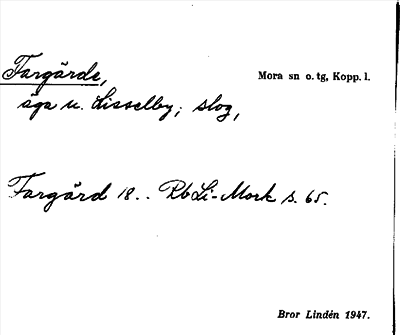 Fargärde, Mora sn o. tg, Kopp. l.
äga u. Lisselby; slog,
Fargärd 18.. RbLi-Mork s. 65.
Bror Lindén 1947.